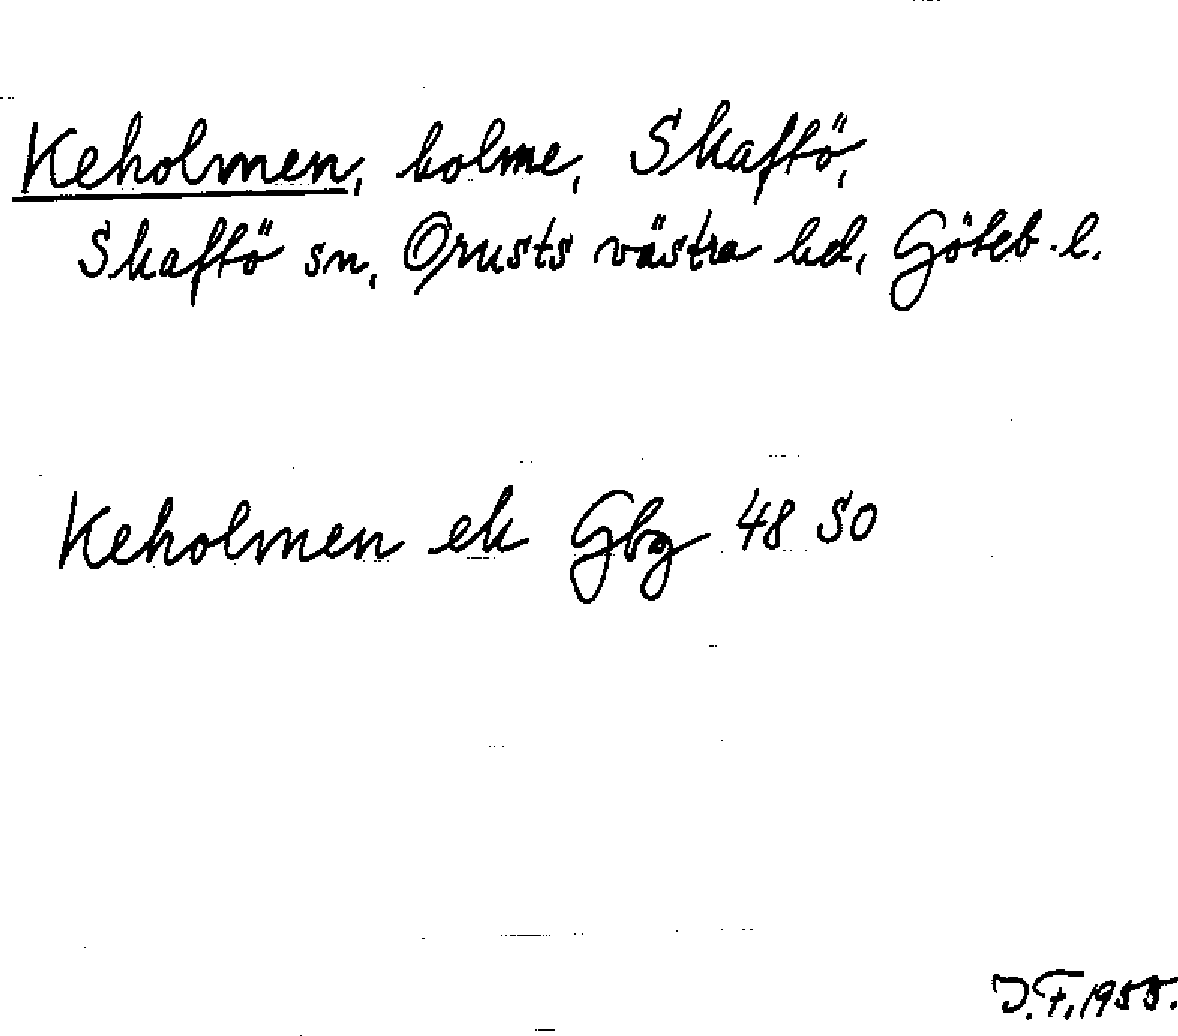 Keholmen, holme, Skaftö,
Skaftö sn, Orusts västra hd, Göteb. l.
Keholmen ek Gbg 48 SO
J. F. 1955.